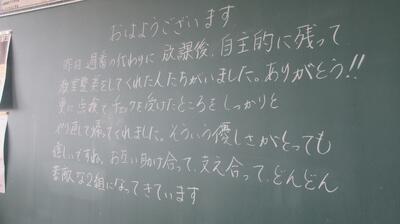 おはようございます
昨日 週番の代わりに 放課後、自主的に残って
教室整美をしてくれた人たちがいました。ありがとう!!
更に点検でチェックを受けたところをしっかりと
やり直して帰ってくれました。そういう優しさがとっても
嬉しいですね。お互い助け合って、支え合って、どんどん
素敵な2組になってきています